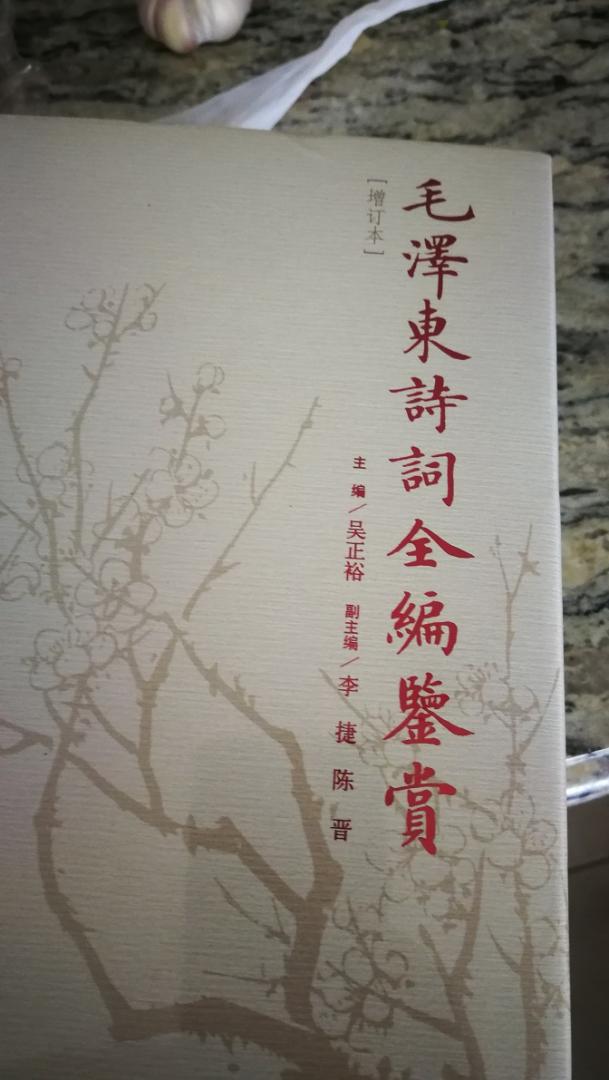 毛澤東詩詞全編鑒賞
［增订本］
主编／吴正裕 副主编／李捷 陈晋